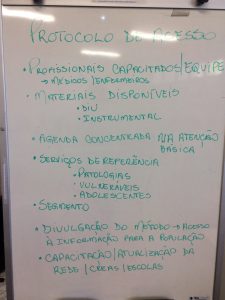 PROTOCOLO DE ACESSO
• PROFISSIONAIS CAPACITADOS/EQUIPE
→ MÉDICOS/ENFERMEIROS
• MATERIAIS DISPONÍVEIS
• DIU
• INSTRUMENTAL
• AGENDA CONCENTRADA NA ATENÇÃO
BÁSICA
• SERVIÇOS DE REFERÊNCIA
• PATOLOGIAS
• VULNERAVEIS
• ADOLESCENTES
• SEGMENTO
• DIVULGAÇÃO DO MÉTODO → ACESSO
À INFORMAÇÃO PARA A POPULAÇÃO
• CAPACITAÇÃO/ATUALIZAÇÃO DA
REDE/CREAS/ESCOLAS